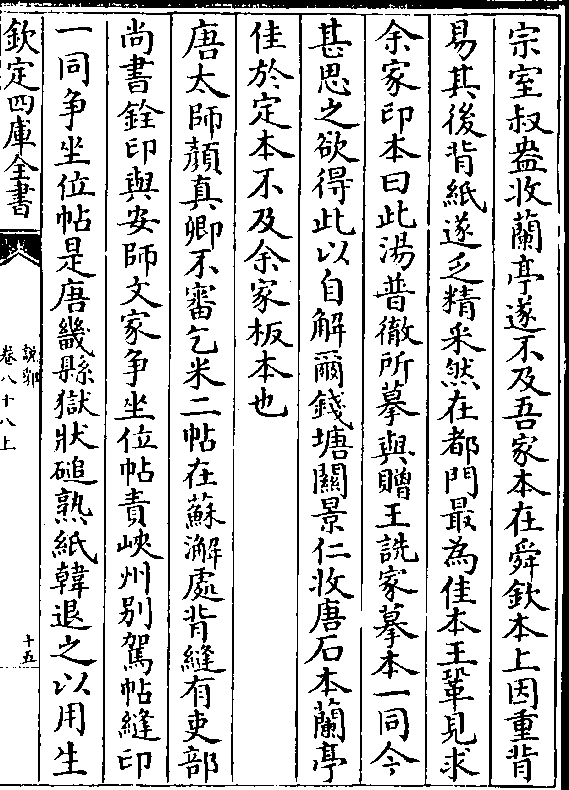 宗室叔盎收蘭亭遂不及吾家本在舜欽本上因重背
易其後背紙遂乏精采然在都門最為佳本王鞏見求
余家印本曰此湯普徹所摹與贈王詵家摹本一同今
甚思之欲得此以自解爾錢塘關景仁收唐石本蘭亭
佳於定本不及余家板本也
唐太師顔真卿不審乞米二帖在蘇澥處背縫有吏部
尚書銓印與安師文家争坐位帖責峽州别駕帖縫印
一同争坐位帖是唐畿縣獄狀磓熟紙韓退之以用生
欽定四庫全書
說郛
卷八十八上
十五